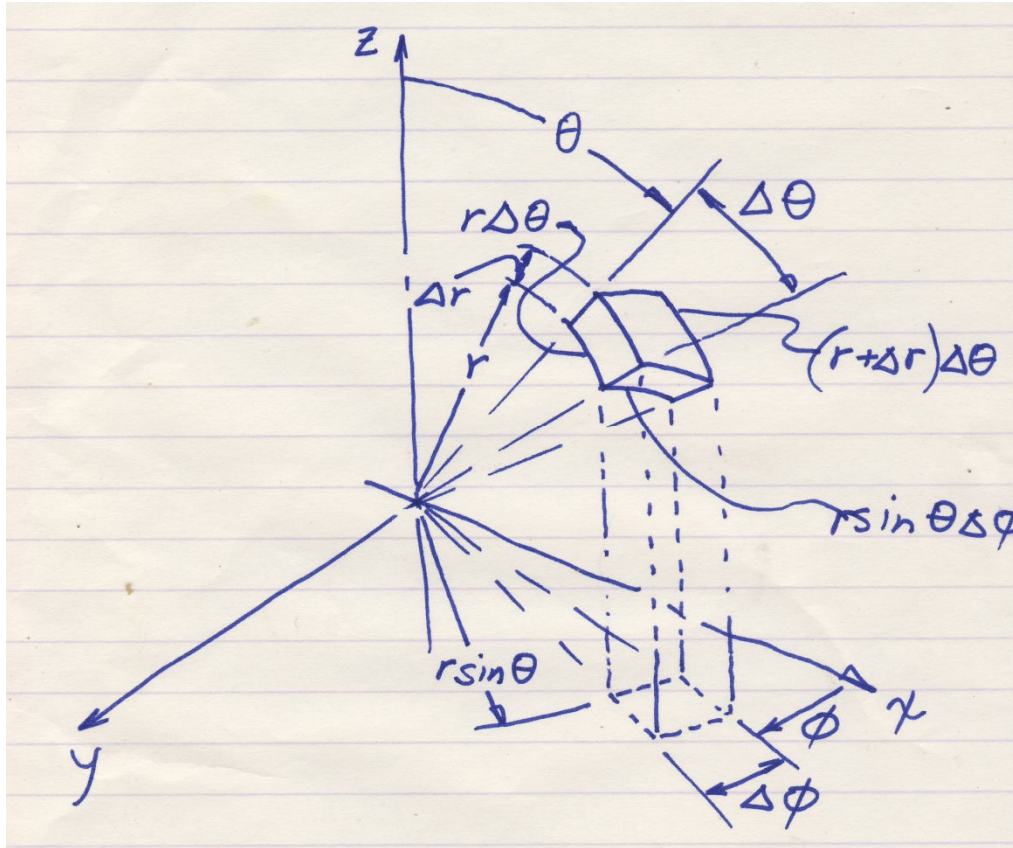 z
θ
Δθ
rΔθ
Δr
r
(r+Δr)Δθ
r sin θ Δϕ
r sin θ
x
ϕ
y
Δϕ